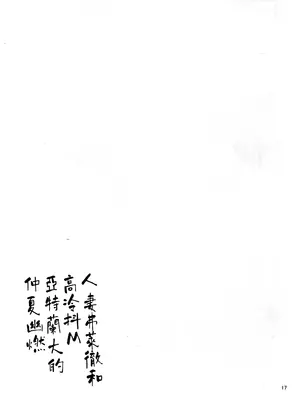 人妻弗萊徹和
高冷抖M
亞特蘭大的
仲夏幽燃
17